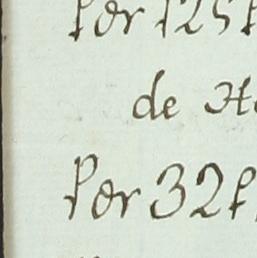 Por 125
de
Por 32